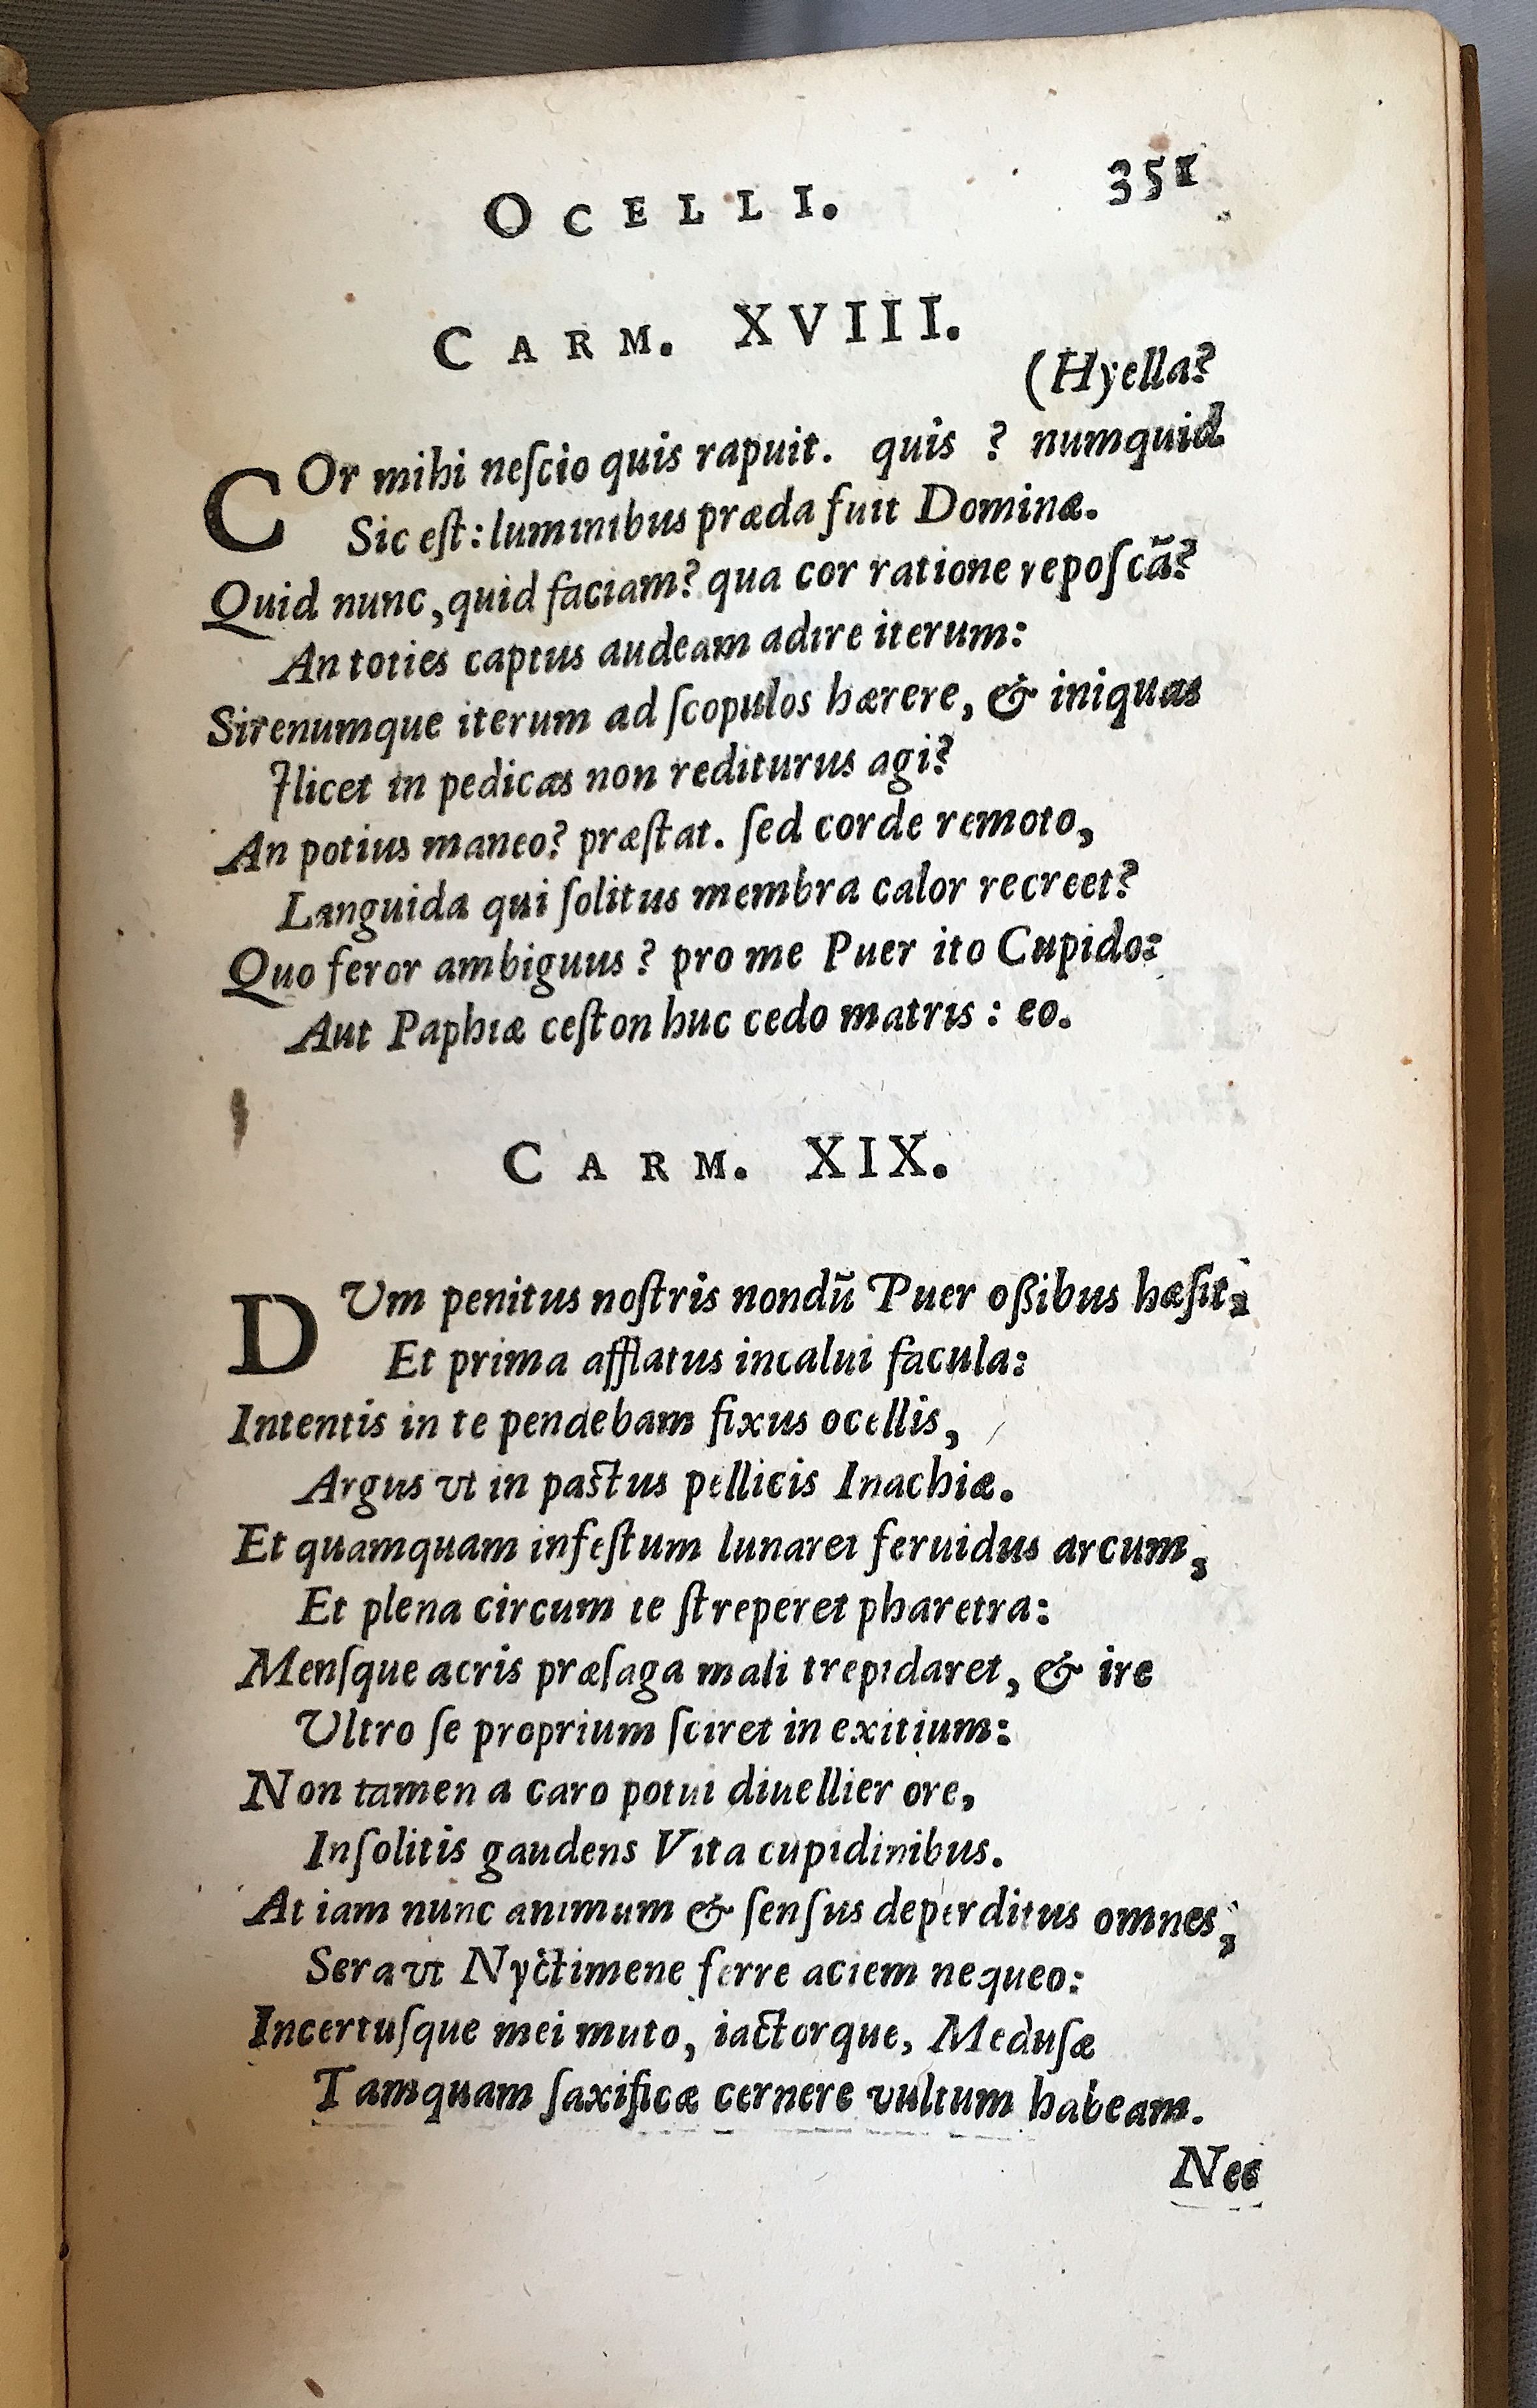 OCELLI. 351
CARM. XVIII.
(Hyella?
COr mihi neſcio quis rapuit. quis ? numquid
Sic eſt: luminibus præda fuit Dominæ.
Quid nunc, quid faciam? qua cor ratione repoſcā?
An toties captus audeam adire iterum:
Sirenumque iterum ad ſcopulos hærere, & iniquas
Ilicet in pedicas non rediturus agi?
An potius maneo? præſtat. ſed corde remoto,
Languida qui ſolitus membra calor recreet?
Quo feror ambiguus ? pro me Puer ito Cupido:
Aut Paphiæ ceſton huc cedo matris : eo.
CARM. XIX.
DUm penitus noſtris nondū Puer oßibus hæſit,
Et prima afflatus incalui facula:
Intentis in te pendebam fixus ocellis,
Argus vt in paſtus pellicis Inachiæ.
Et quamquam infeſtum lunaret feruidus arcum,
Et plena circum te ſtreperet pharetra:
Menſque acris præſaga mali trepidaret, & ire
Ultro ſe proprium ſciret in exitium:
Non tamen a caro potui diuellier ore,
Inſolitis gaudens Vita cupidinibus.
At iam nunc animum & ſenſus deperditus omnes,
Sera vt Nyctimene ferre aciem nequeo:
Incertuſque mei muto, iactorque, Meduſæ
Tamquam ſaxificæ cernere vultum habeam.
Nec